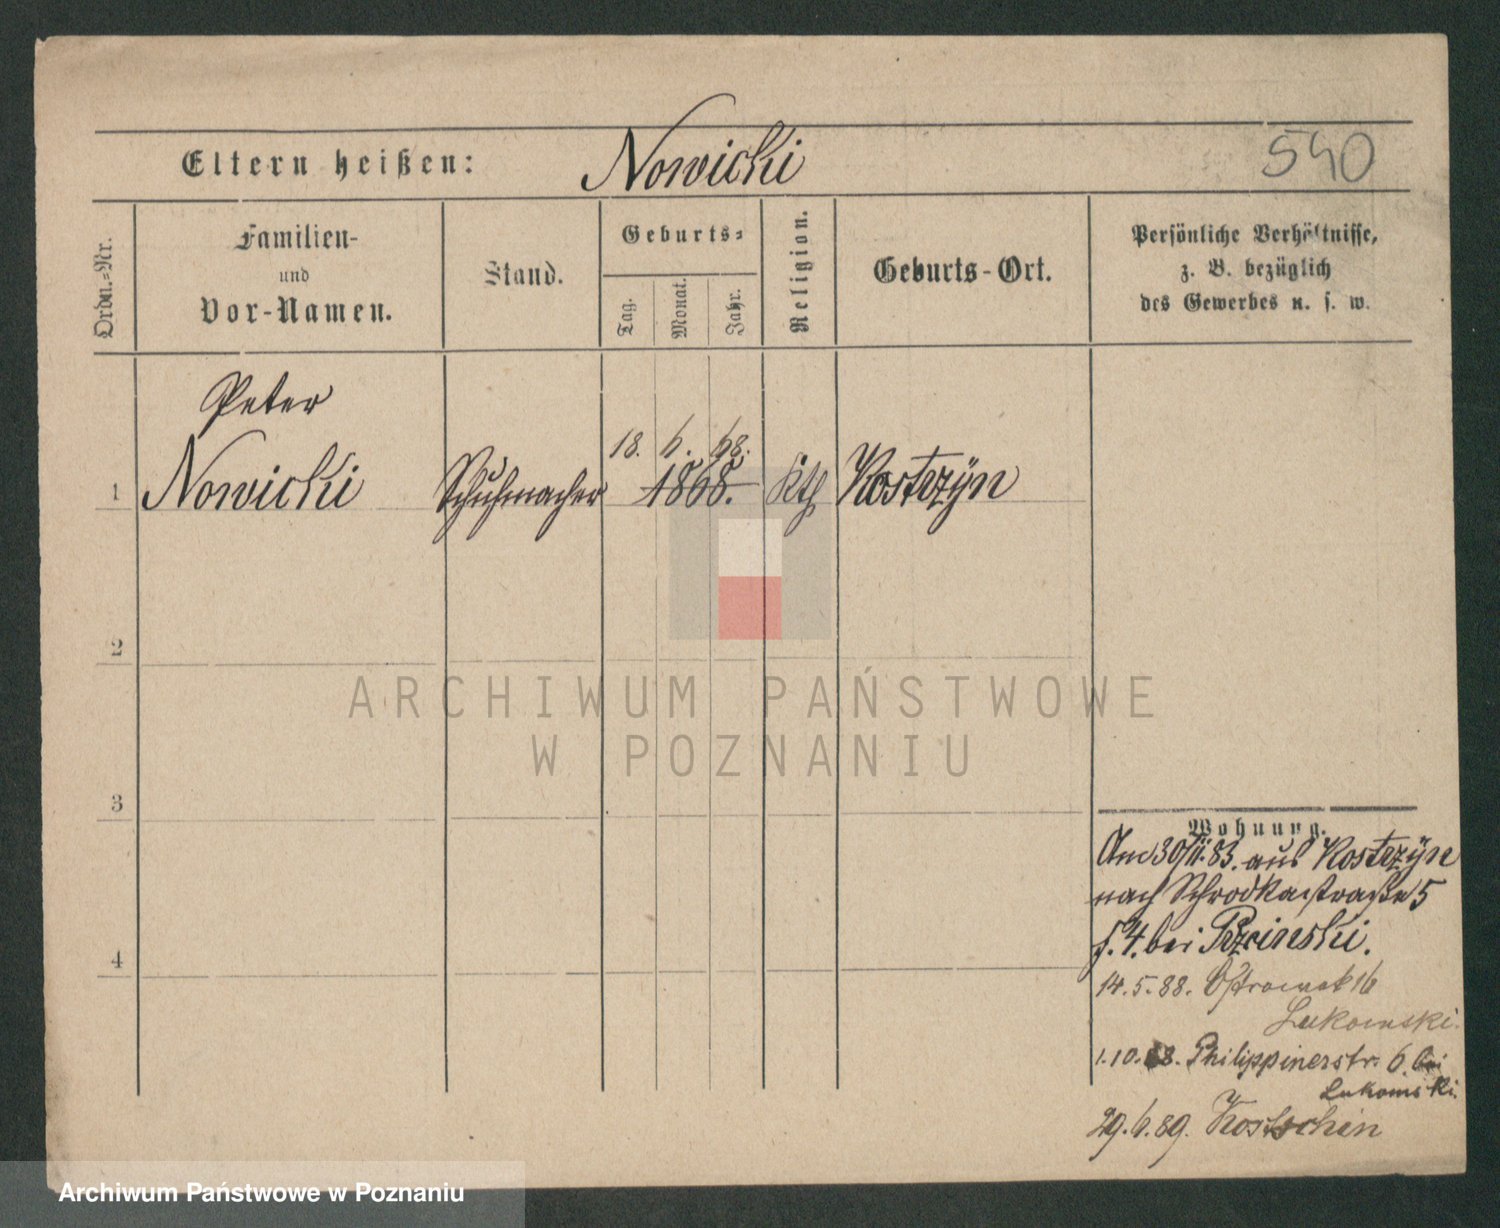 Eltern heißen: Nowicki 540
Ordn.-Nr.
Familien-
und
Vor-Namen.
Stand.
Geburts-
Tag.
Monat.
Jahr.
Religion.
Geburts-Ort.
Persönliche Verhältnisse,
z. B. bezüglich
des Gewerbes u. s. w.
Peter
18. 6. 68.
1 Nowicki Schuhmacher 1868. Kth Kostrzÿn
2
3
4
Wohnung.
Am 30/11.83. aus Kostrzÿn
nach Schrodkastraße 5
f. 4. bei
14.5.88. Ostrowek 16
Lukomski.
1.10.88. Philippinerstr. 6. bei
Lukomski.
29.6.89. Kostschin
ARCHIWUM PAŃSTWOWE
W POZNANIU
Archiwum Państwowe w Poznaniu